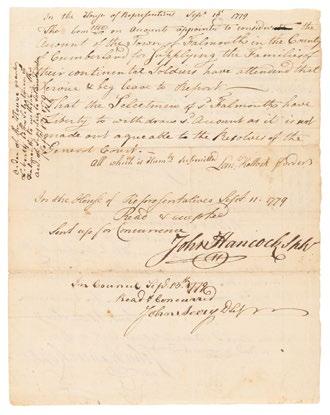 In the House of Representatives Sept 1779
The Com on Account appointed to consider the
account of the Town of Falmouth in the County
of Cumberland for supplying the Families of
their continental Soldiers have attend that
service & beg leave to Report
That the Selectmen of Falmouth have
Liberty to withdraw Account as it is not
made out agreable to the Resolves of the
General Court
all which is Humly submitted
In the House of Representatives Sept 11. 1779
Read & accepted
Sent up for Concurrence
John Hancock Spkr
In Council Sept 1779
Read & Concurred
John Avery D Sy